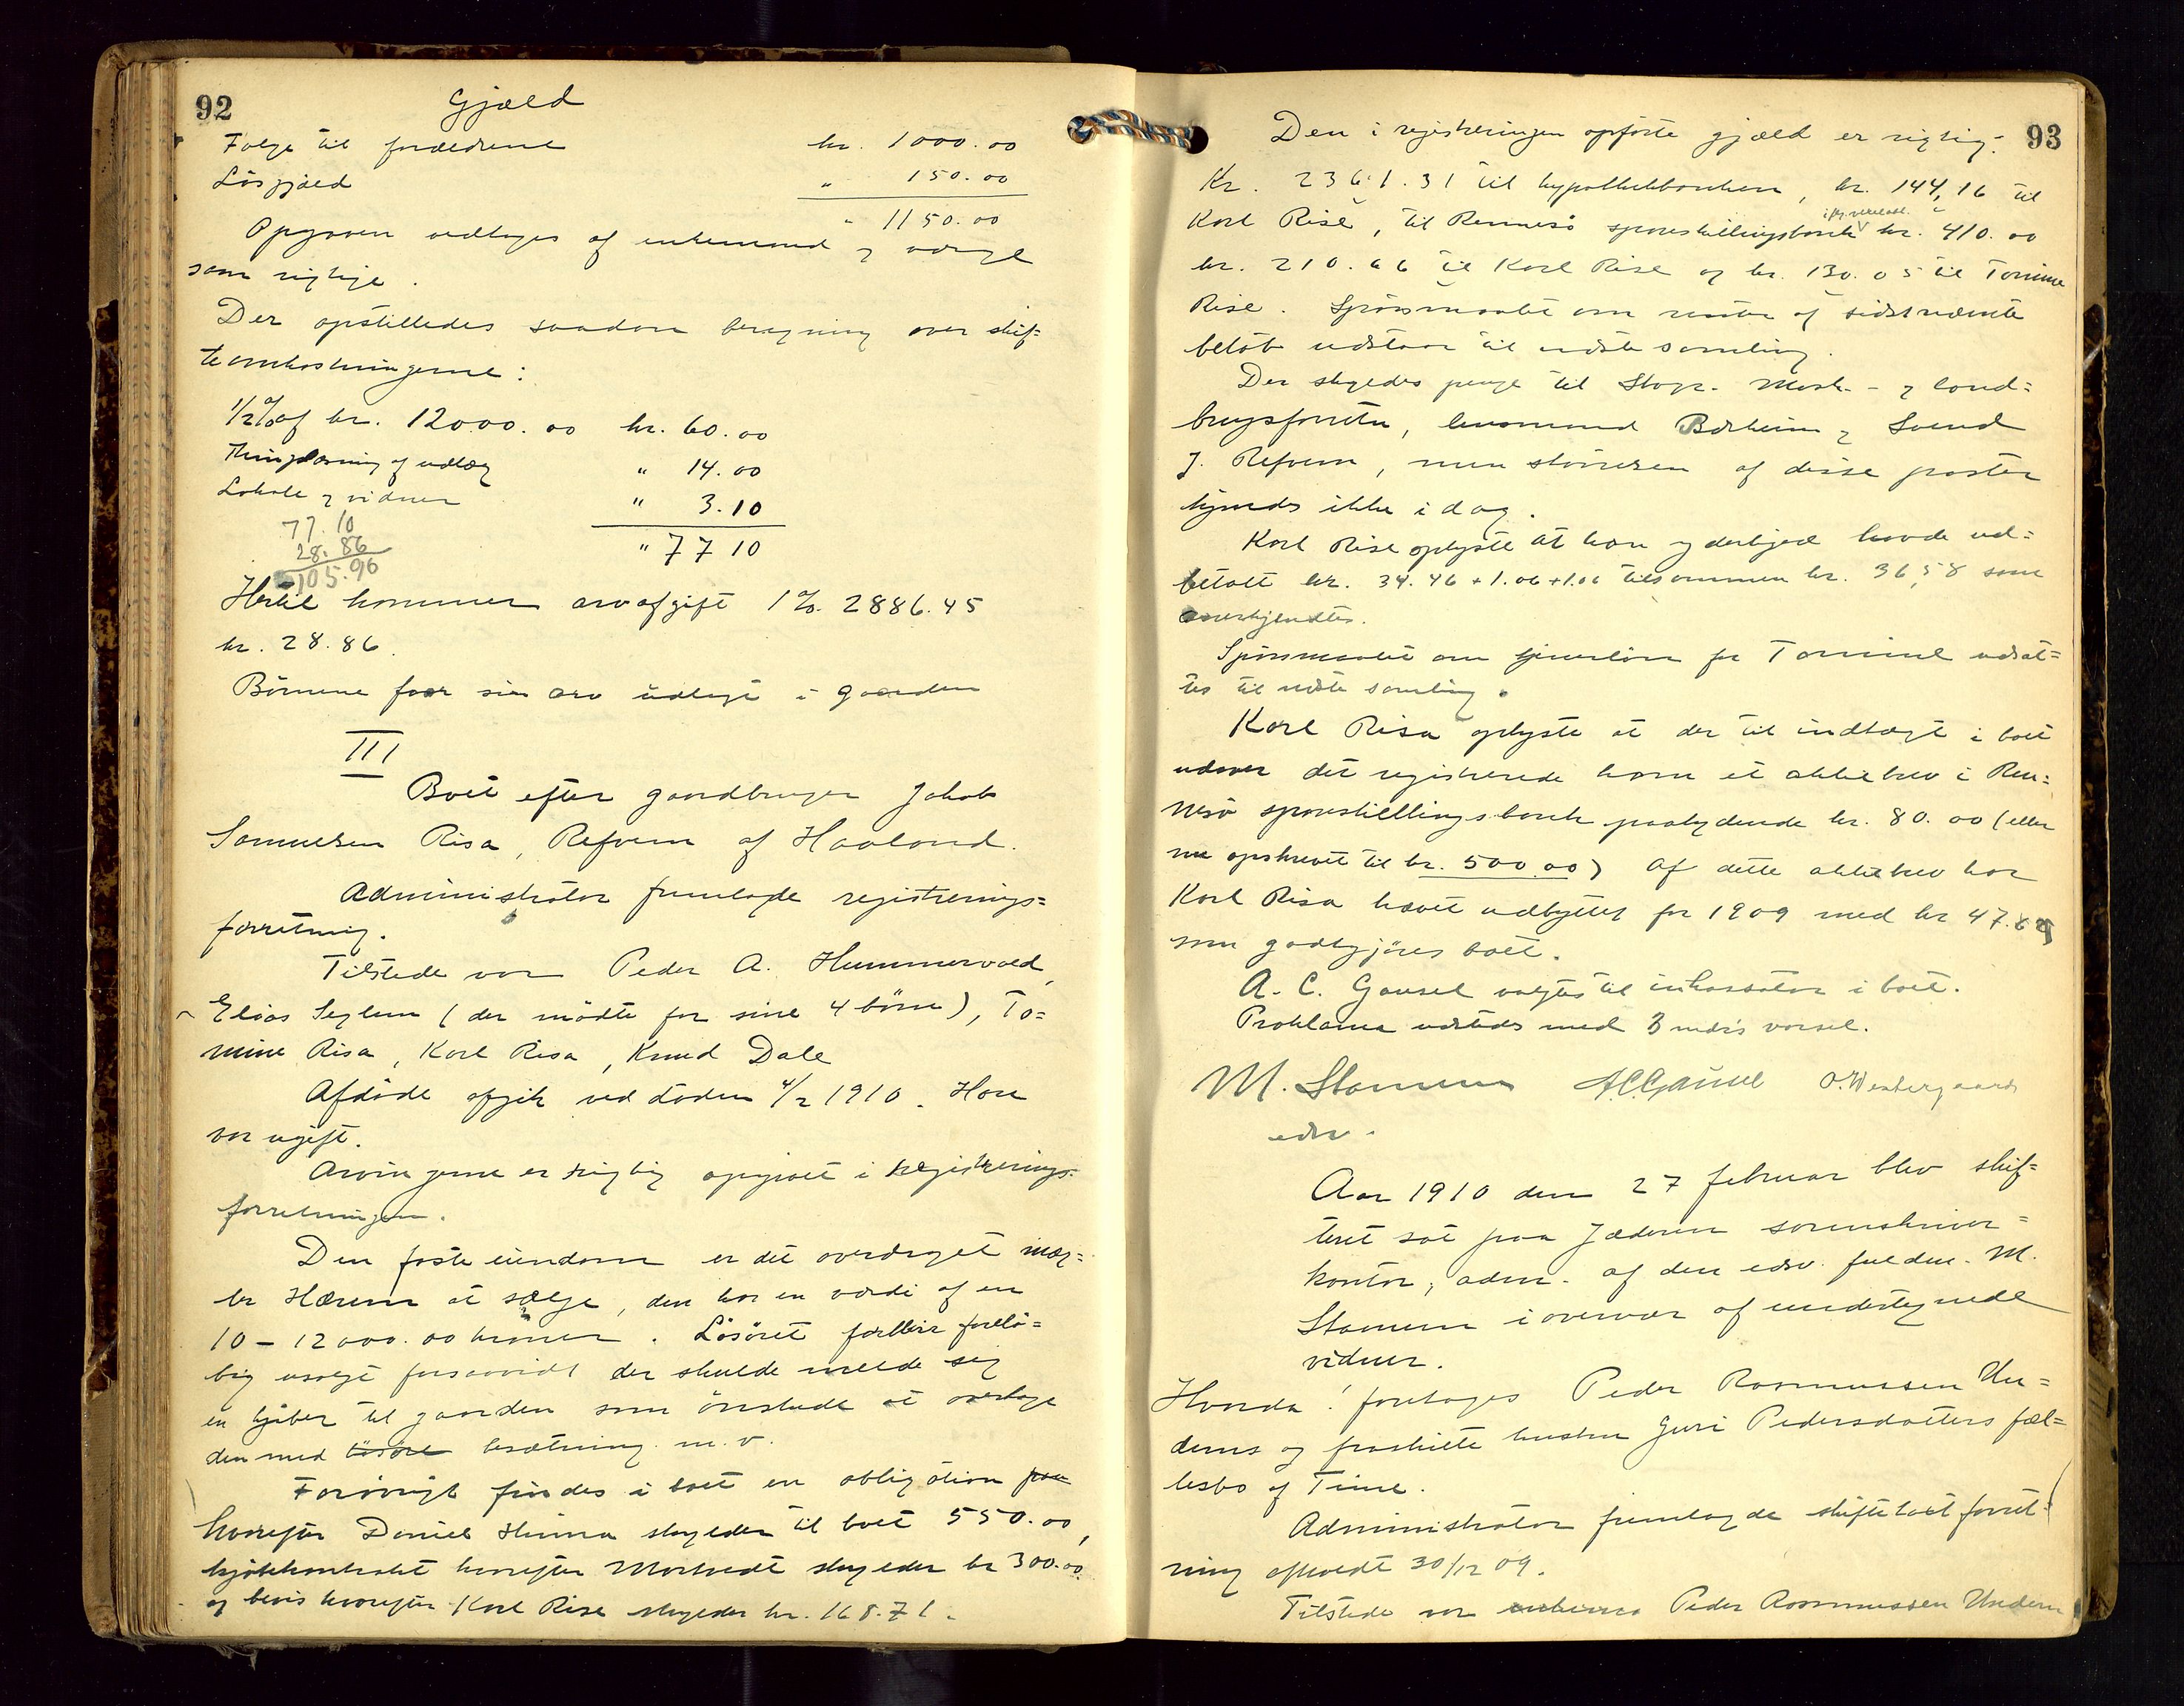 92
Gjæld
Følge til forældrene kr. 1000.00
Løsgjæld " 150.00
" 1150.00
Opgaven vedtages af enkemand og værge
som rigtige.
Der opstilledes saadan beregning over skif=
teomkostningerne:
1/2% af kr. 12000.00 kr. 60.00
Thinglæsning af udlæg " 14.00
Lokale og vidner " 3.10
" 77 10
77.10
28.86
105.96
Hertil kommer arvafgift 1% 2886.45
kr. 28.86.
Børnene faar sin arv udlagt i gaarden
III
Boet efter gaardbruger Jakob
Samuelsen Risa, Refvem af Haaland.
Administrator fremlagde registrerings=
forretning.
Tilstede var Peder A. Hummervold,
Elias Seglem (der mødte for sine 4 børn), To=
mine Risa, Karl Risa, Knud Dale
Afdøde afgik ved døden 4/2 1910. Han
var ugift.
Arvingerne er rigtig opgivet i registrerings=
forretningen.
Den faste eiendom er det overdraget mæg=
ler Hærem at sælge, den har en værdi af en
10 - 12000.00 kroner. Løsøret forblir forelø=
big usolgt forsaavidt der skulde melde sig
en kjøber til gaarden som ønskede at overtage
den med løsøre besætning m.v.
Forøvrigt findes i boet en obligation paa
hvorefter Daniel Hinna skylder til boet 550.00,
kjøbekontrakt hvorefter Mortvedt skylder kr 300.00
og bevis hvorefter Karl Rise skylder kr. 168.71.
93
Den i registreringen opførte gjæld er rigtig:
Kr. 2361.31 til hypothekbanken, kr. 144,16 til
Karl Rise, til Rennesø spareskillingsbank kr. 410.00
kr. 210.66 til Karl Rise og kr. 130.05 til Tomine
Rise. Spørsmaalet om renter af sidstnævnte
beløb udstaar til næste samling.
Der skyldes penge til Stvgr. Mask.- og land=
brugsforretn, lensmand Børheim og Svend
J. Refvem, men størrelsen af disse poster
kjendes ikke idag.
Karl Rise oplyste at han yderligere havde ud=
betalt kr. 34.46 + 1.06 + 1.06 tilsammen kr. 36,58 som
anerkjendtes.
Spørsmaalet om tjenerløn for Tomine udsat=
tes til næste samling.
Karl Risa oplyste at der til indtægt i boet
udover det registrerede kom et aktiebrev i Ren=
nesø spareskillingsbank paalydende kr. 80.00 (eller
nu opskrevet til kr. 500.00) Af dette aktiebrev har
Karl Risa hævet udbyttet for 1909 med kr 47.
som godtgjøres boet.
A. C. Gausel valgtes til inkassator i boet.
Proklama udstedes med 3 mdrs varsel.
M. Stamnes A.C.Gausel O. Westergaard
edsv.
Aar 1910 den 27 februar blev skif=
teret sat paa Jæderen sorenskriver=
kontor, adm. af den edsv. fuldm. M.
Stamnes i overvær af undertegnede
vidner.
Hvorda! foretages Peder Rasmussen Un=
dems og fraskilte hustru Guri Pedersdatters fæl=
lesbo af Time.
Administrator fremlagde skiftetaxtforret=
ning afholdt 30/12 09.
Tilstede var Peder Rasmussen Undem